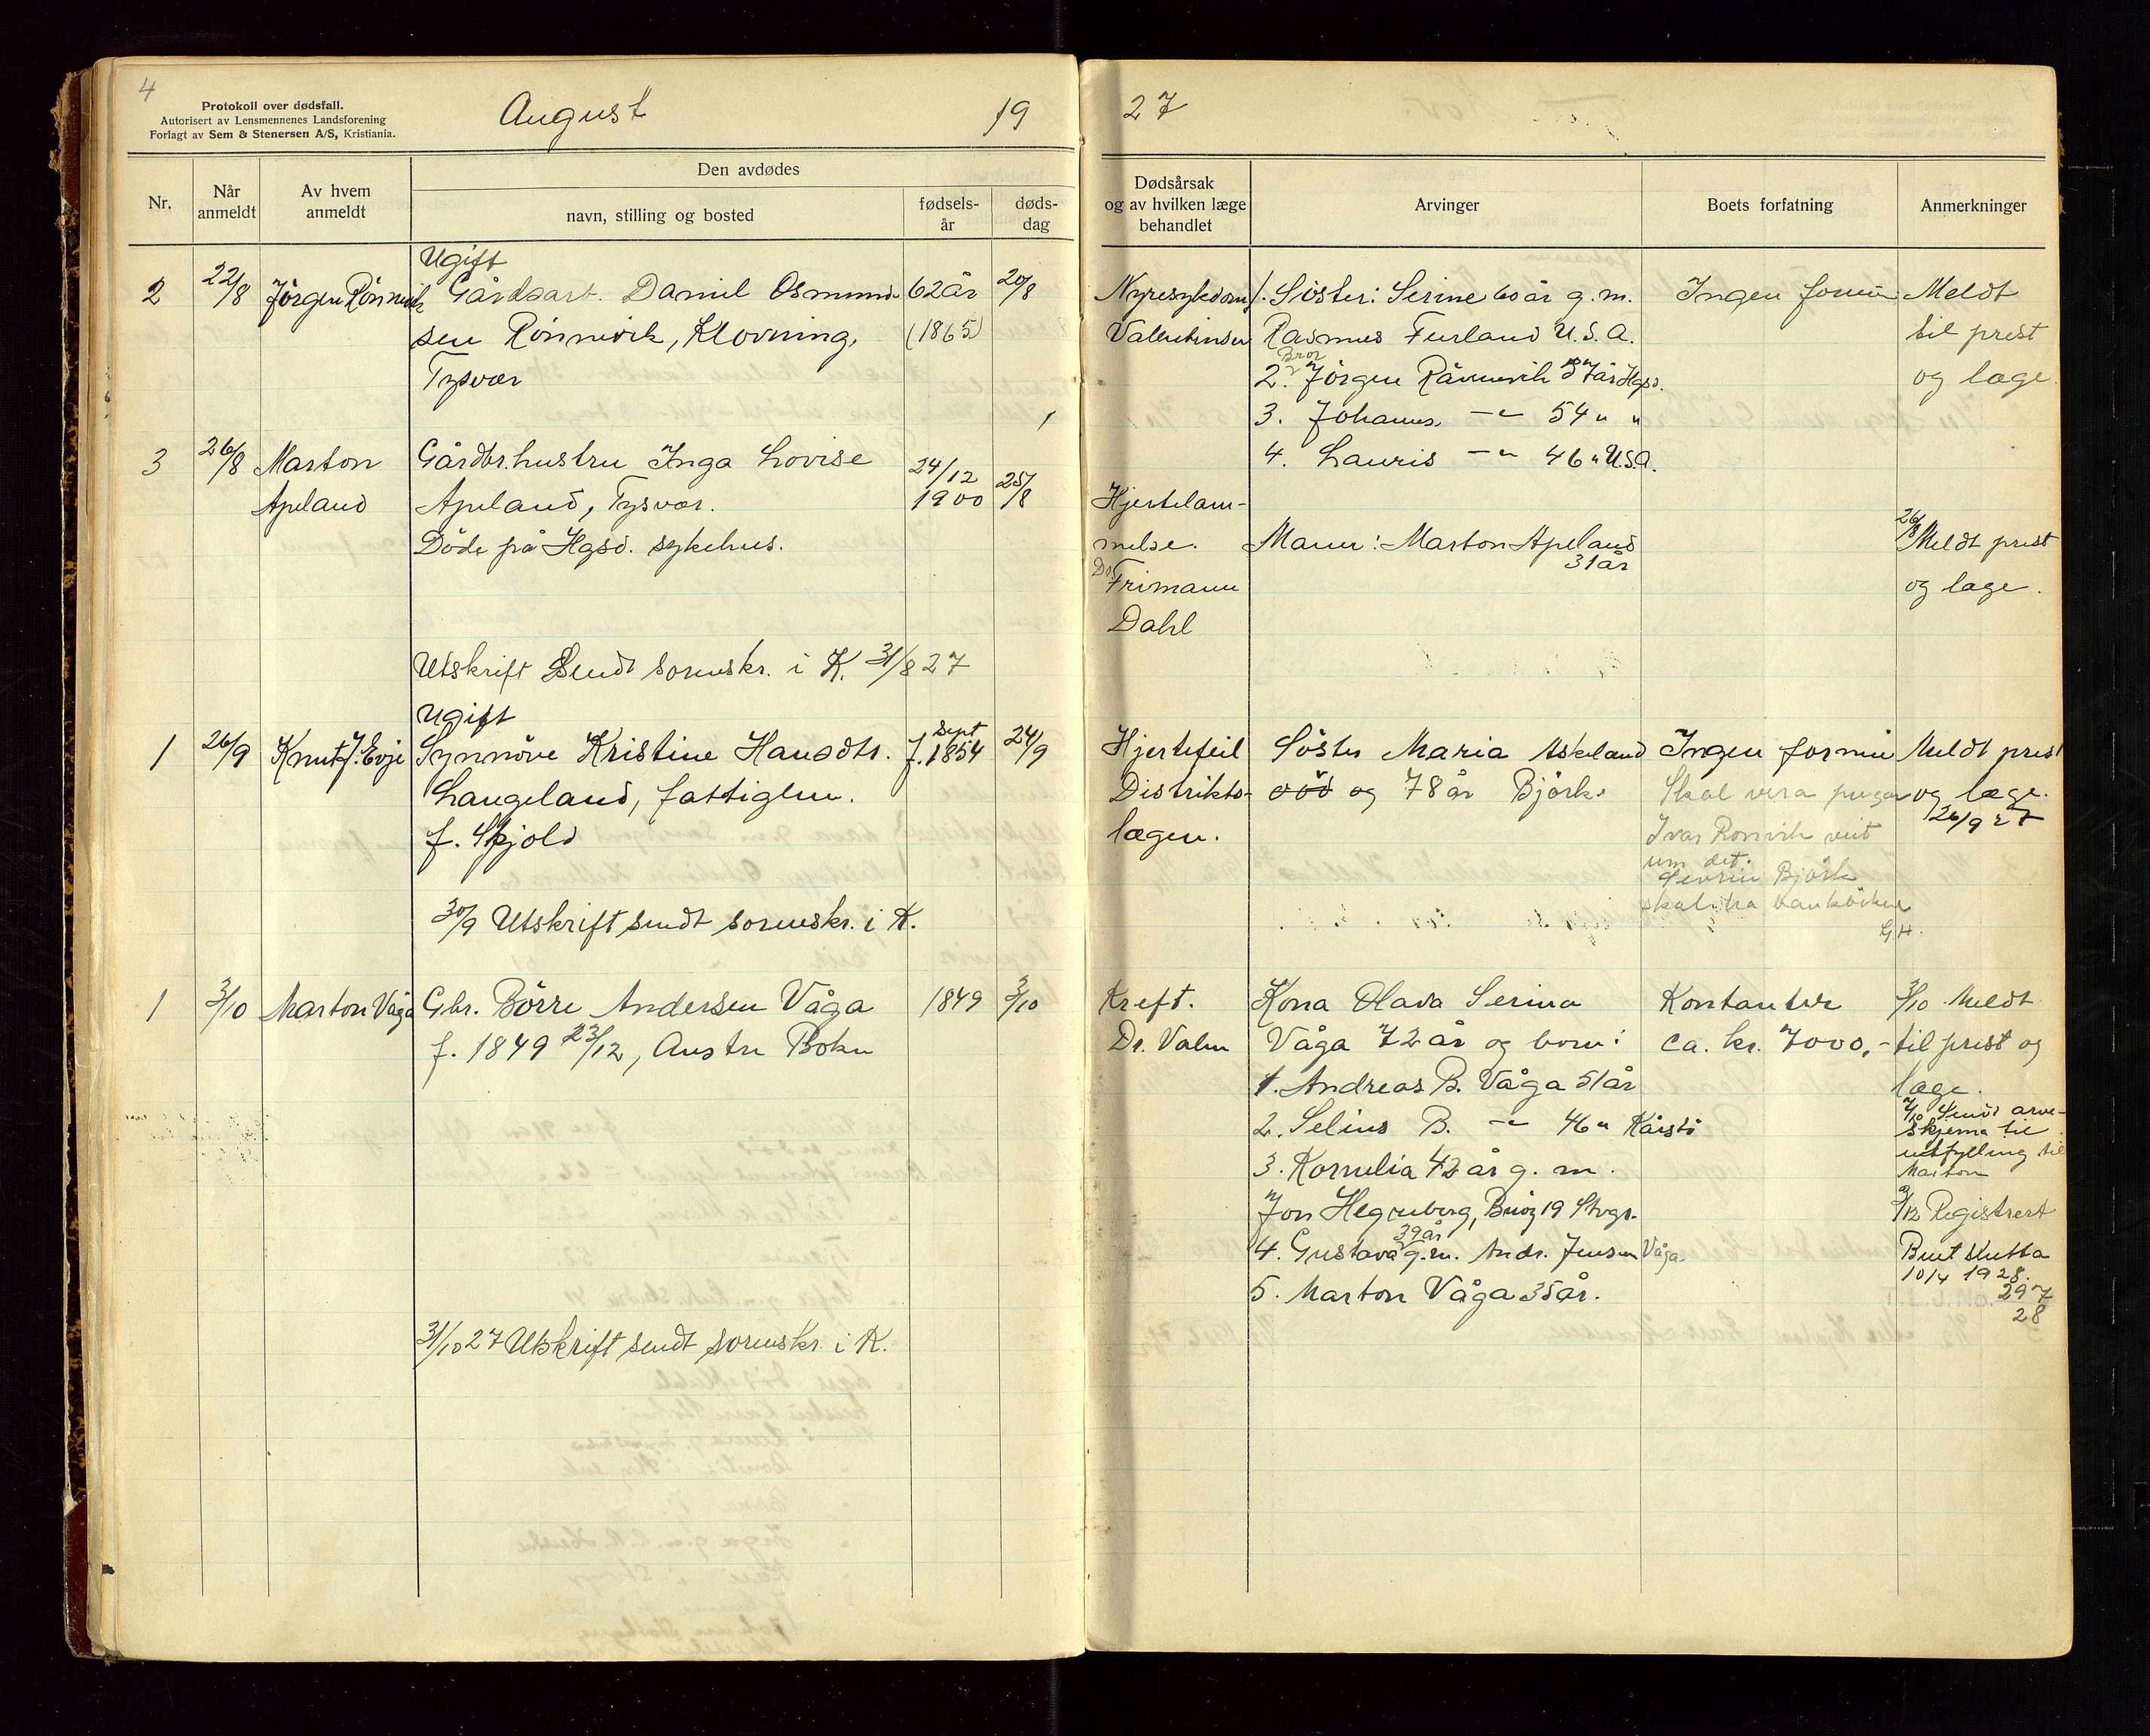 4
Protokoll over dødsfall.
Autorisert av Lensmennenes Landsforening
Forlagt av Sem & Stenersen A/S, Kristiania.
August 19
27
Nr.
Når anmeldt
Av hvem anmeldt
Den avdødes
navn, stilling og bosted
fødsels-år
døds-dag
Dødsårsak
og av hvilken læge
behandlet
Arvinger
Boets forfatning
Anmerkninger
2
22/8
Jörgen Rönnevik
Ugift
Gårdsarb. Daniel Osmund-
sen Rönnevik, Klovning,
Tysvær
62 år
(1865)
20/8
Nyresykdom
Valentinsen
1. Söster: Serine 60 år g. m.
Rasmus Furland U.S.A.
Bror
2. Jörgen Rönnevik 57 år Hgsd.
3. Johannes —"— 54 " "
4. Lauris —"— 46 " U.S.A.
Ingen formue
Meldt
til prest
og læge
3
26/8
Marton
Apeland
Gårdbr.hustru Inga Lovise
Apeland, Tysvær.
Döde på Hgsd. sykehus.
24/12
1900
25/8
Hjertelam-
melse.
Dr.
Frimann
Dahl
Mann: Marton Apeland
31 år
26/8 Meldt prest
og læge.
Utskrift Sendt sorenskr. i K. 31/8 27
1
26/9
Knut J. Evje
Ugift
Synnöve Kristine Hansdtr.
Langeland, fattiglem.
f. Skjold
Sept
f. 1854
24/9
Hjertefeil
Distrikts-
lægen.
Söster Maria Askeland
og 78 år Björk.
Ingen formue
Skal vera pengar
Ivar Ronvik veit
um det.
Sevrin Björk
skal ha bankböken
G.H.
Meldt prest
og læge.
26/9 27
30/9 Utskrift sendt sorenskr. i K.
1
3/10
Marton Våga
Gbr. Börre Andersen Våga
f. 1849 23/12, Austre Bokn
1849
3/10
Kreft.
Dr. Valen
Kona Olava Serina
Våga 72 år og born:
1. Andreas B. Våga 51 år
2. Selius B. —"— 46 " Kårstö
3. Kornelia 42 år g. m.
Jon Hegreberg, 19 Stvgr.
39 år
4. Gustava g. m. Andr. Jensen Våga.
5. Marton Våga 35 år.
Kontanter
ca. kr. 7000,-
3/10 Meldt
til prest og
læge.
7/10 Sendt arve-
skjema til
utfylling til
Marton
9/12 Registrert
Buet slutta
10/4 1928.
297
28
31/10 27 Utskrift sendt sorenskr. i K.